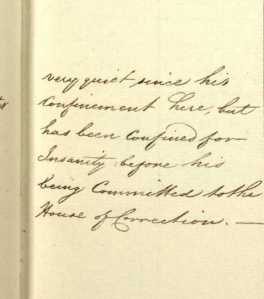 very quiet, since his
Confinement here, but
has been Confined for
Insanity before his
being Committed to the
House of Correction. —